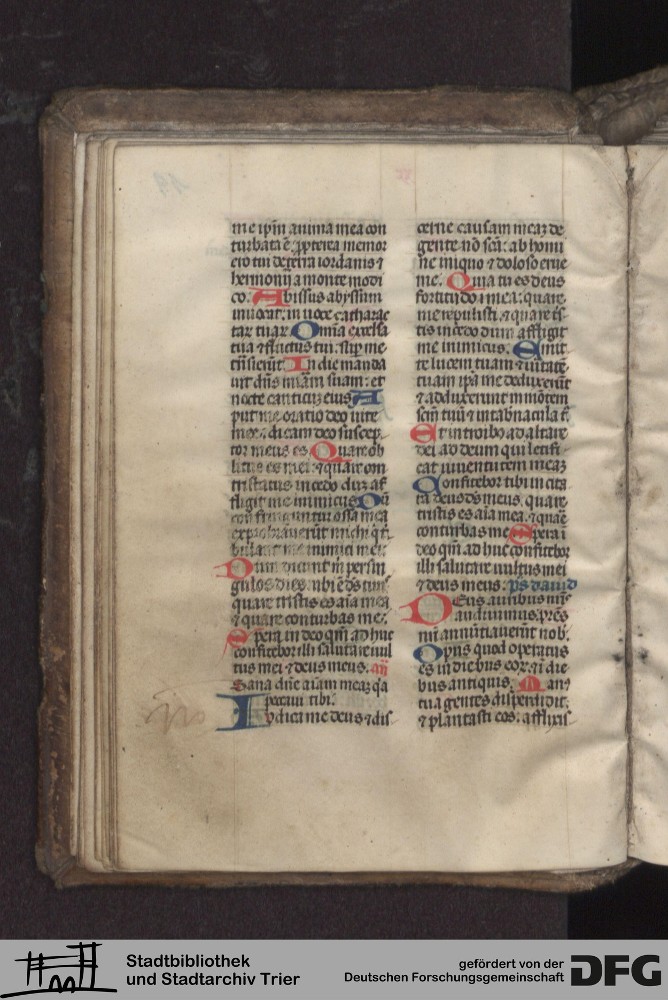 me ip̄m anima mea con
turbata ē: ꝓpterea memor
ero tui de terra iordanis ⁊
hermonij a monte modi
co. Abissus abyssum
inuocat: in uoce catharac
tar tuar. Omīa excelsa
tua ⁊ fluctus tui: sup me
t̄nsierūt. In die manda
uit dn̄s mīam suam: et
nocte canticū eius. A
put me oratio deo uite
mee: dicam deo suscep
tor meus es. Quare ob
litus es mei: ⁊ quare con
tristatus incedo duz af
fligit me inimicus. Dū
confringuntur ossa mea
exprobrauerūt michi q̄ t̄
bulant me inimici mei:
Dum dicunt m̄ per sin
gulos dies: ubi ē ds̄ tuus
quare tristis es aīa mea
⁊ quare conturbas me.
Spera in deo qm̄ ad huc
confitebor illi salutare uul
tus mei ⁊ deus meus. an̄
Sana dn̄e aīam meaz q̄a
peccaui tibi.
Iudica me deus ⁊ dis
cerne causam meaz de
gente nō scā: ab homi
ne iniquo ⁊ doloso erue
me. Quia tu es deus
fortitudo mea: quare
me repulisti: ⁊ quare t̄s
tis incedo dum affligit
me inimicus. Emit
te lucem tuam ⁊ ūitatē
tuam ip̄a me deduxerūt
⁊ adduxerunt in mōtem
scm̄ tuū ⁊ in tabnacula t̄
Et introibo ad altare
dei ad deum qui letifi
cat iuuentutem meaz
Confitebor tibi in cita
ra deus ds̄ meus. quare
tristis es aīa mea ⁊ quare
conturbas me. Spera ī
deo qm̄ ad huc confitebor
illi salutare uultus mei
⁊ deus meus. p̄s dauid
Deus auribus nr̄is
audiuimus: pr̄es
nr̄i annūtiauerūt nob.
Opus quod operatus
es in diebus eor: ⁊ ī die
bus antiquis. Man
tua gentes disperdidit:
⁊ plantasti eos: afflixis
Stadtbibliothek
und Stadtarchiv Trier
gefördert von der
Deutschen Forschungsgemeinschaft
DFG